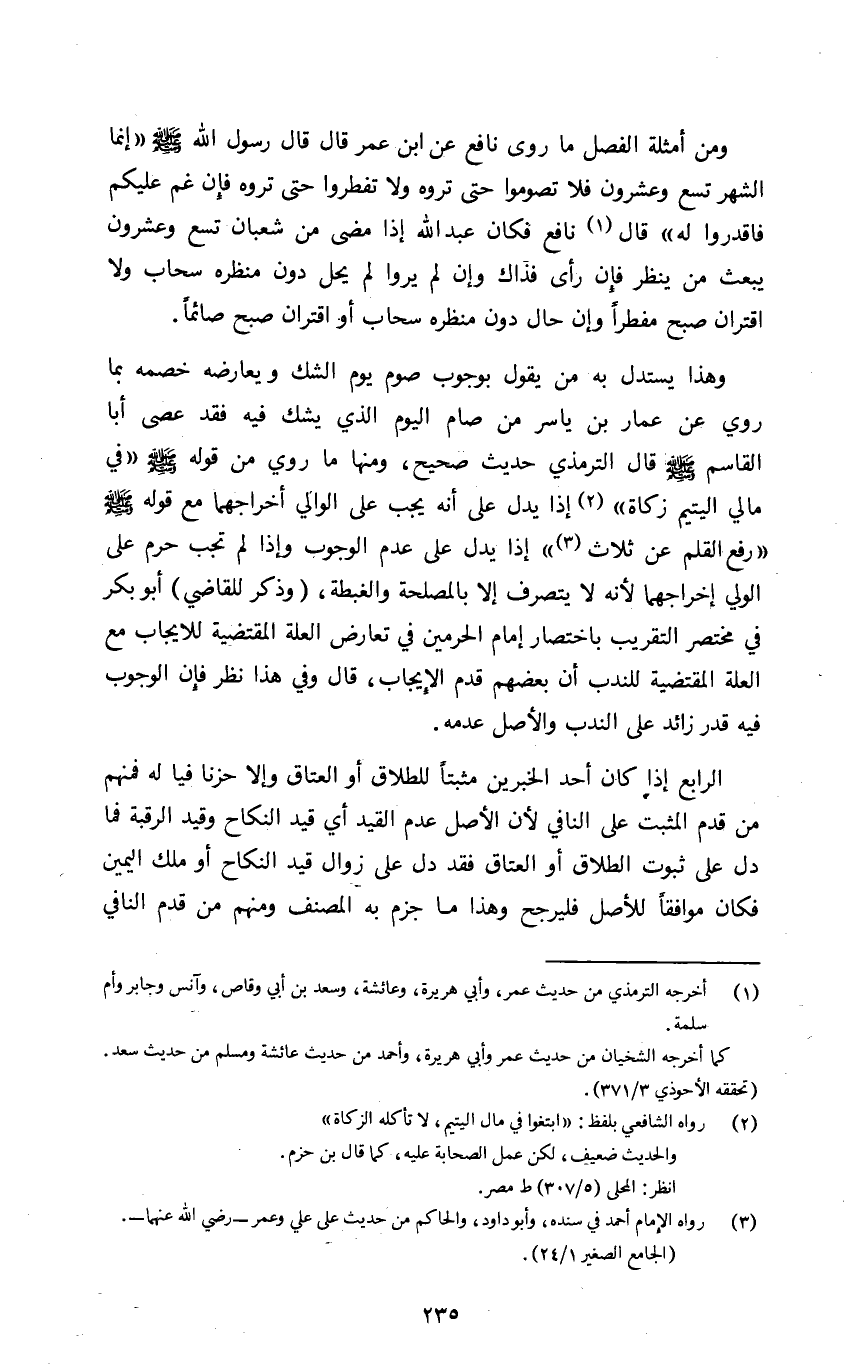 ومن أمثلة الفصل ما روى نافع عن ابن عمر قال قال رسول الله ﷺ «إنما
الشهر تسع وعشرون فلا تصوموا حتى تروه ولا تفطروا حتى تروه فإن غم عليكم
فاقدروا له» قال (١) نافع فكان عبدالله إذا مضى من شعبان تسع وعشرون
يبعث من ينظر فإن رأى فذاك وإن لم يروا لم يحل دون منظره سحاب ولا
اقتران صبح مفطراً وإن حال دون منظره سحاب أو اقتران صبح صائماً.
وهذا يستدل به من يقول بوجوب صوم يوم الشك ويعارضه خصمه بما
روي عن عمار بن ياسر من صام اليوم الذي يشك فيه فقد عصى أبا
القاسم ﷺ قال الترمذي حديث صحيح، ومنها ما روي من قوله ﷺ «في
مالي اليتيم زكاة» (٢) إذا يدل على أنه يجب على الوالي أخراجها مع قوله ﷺ
«رفع القلم عن ثلاث (٣)» إذا يدل على عدم الوجوب وإذا لم تجب حرم على
الولي إخراجها لأنه لا يتصرف إلا بالمصلحة والغبطة، (وذكر للقاضي) أبو بكر
في مختصر التقريب باختصار إمام الحرمين في تعارض العلة المقتضية للايجاب مع
العلة المقتضية للندب أن بعضهم قدم الإيجاب، قال وفي هذا نظر فإن الوجوب
فيه قدر زائد على الندب والأصل عدمه.
الرابع إذا كان أحد الخبرين مثبتاً للطلاق أو العتاق وإلا حزنا فيا له فمنهم
من قدم المثبت على النافي لأن الأصل عدم القيد أي قيد النكاح وقيد الرقبة فما
دل على ثبوت الطلاق أو العتاق فقد دل على زوال قيد النكاح أو ملك اليمين
فكان موافقاً للأصل فليرجح وهذا ما جزم به المصنف ومنهم من قدم النافي
(١) أخرجه الترمذي من حديث عمر، وأبي هريرة، وعائشة، وسعد بن أبي وقاص، وآنس وجابر وأم
سلمة.
كما أخرجه الشخيان من حديث عمر وأبي هريرة، وأحمد من حديث عائشة ومسلم من حديث سعد.
(تحققه الأحوذي ٣٧١/٣).
(٢) رواه الشافعي بلفظ: «ابتغوا في مال اليتيم، لا تأكله الزكاة»
والحديث ضعيف، لكن عمل الصحابة عليه، كما قال بن حزم.
انظر: المحلى (٣٠٧/٥) ط مصر.
(٣) رواه الإمام أحمد في سنده، وأبو داود، والحاكم من حديث على علي وعمر ــ رضي الله عنهما ــ.
(الجامع الصغير ٢٤/١).
٢٣٥